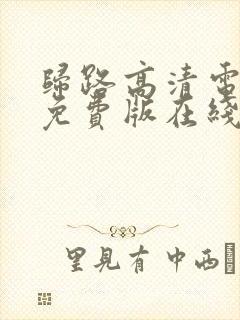 歸路高清電
免費版在綫
里見有中西